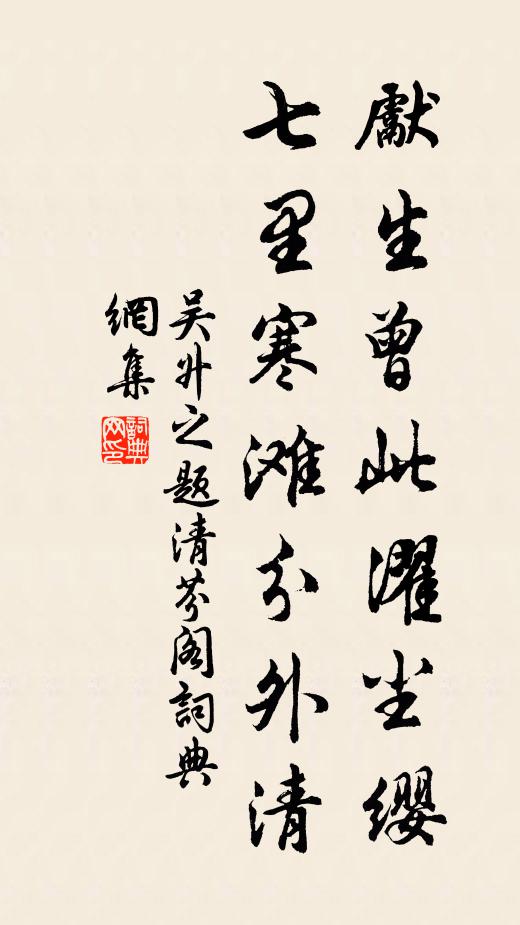 獻生曾此濯尘缨
七里寒滩分外清
吴升之题清芬阁詞典
網集
詞典
网印